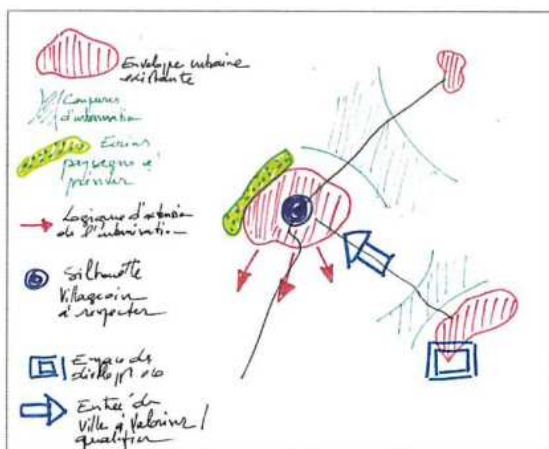 Enveloppe urbaine
existante
Coupures
d'urbanisation
Ecrins
paysagers à
préserver
Logique d'extension
de l'urbanisation
Silhouette
Villageoise
à respecter
Espace de
développt éco
Entrée de
Ville à Valoriser /
qualifier